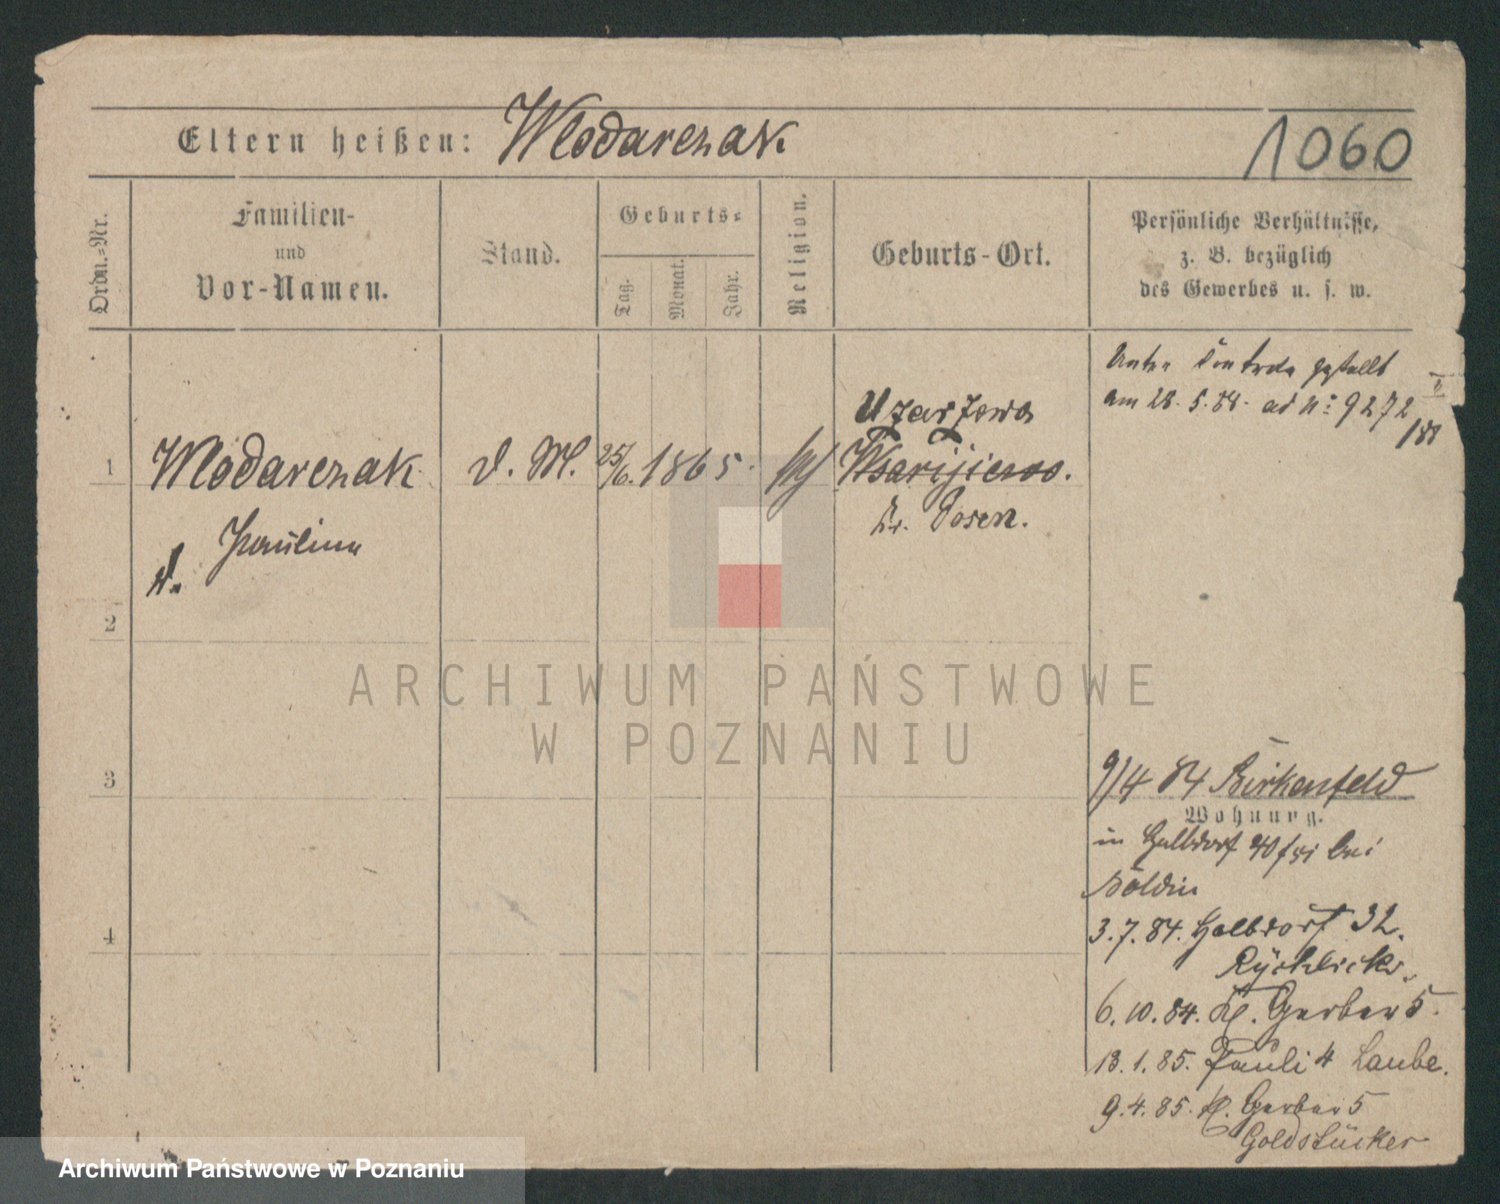 Eltern heißen: Wlodarczak
1060
Ordn.-Nr.
Familien-
und
Vor-Namen.
Stand.
Geburts-
Tag.
Monat.
Jahr.
Religion.
Geburts-Ort.
Persönliche Verhältnisse,
z. B. bezüglich
des Gewerbes u. s. w.
Unter Controle gestellt
am 28. 5. 88. ad No 9272
1
Wlodarczak
d. M.
25/6. 1865.
Uzarzewo
Kr. Posen.
Paulina
2
3
4
9/4 84 Birkenfeld
Wohnung.
in Halbdorf bei
Boldin
3. 7. 84. Halbdorf 32.
Rychlicki
6. 10. 84. Kl. Gerber 5.
13. 1. 85. Pauli 4 Laube.
9. 4. 85. Kl. Gerber 5
Goldstücker
ARCHIWUM PAŃSTWOWE
W POZNANIU
Archiwum Państwowe w Poznaniu